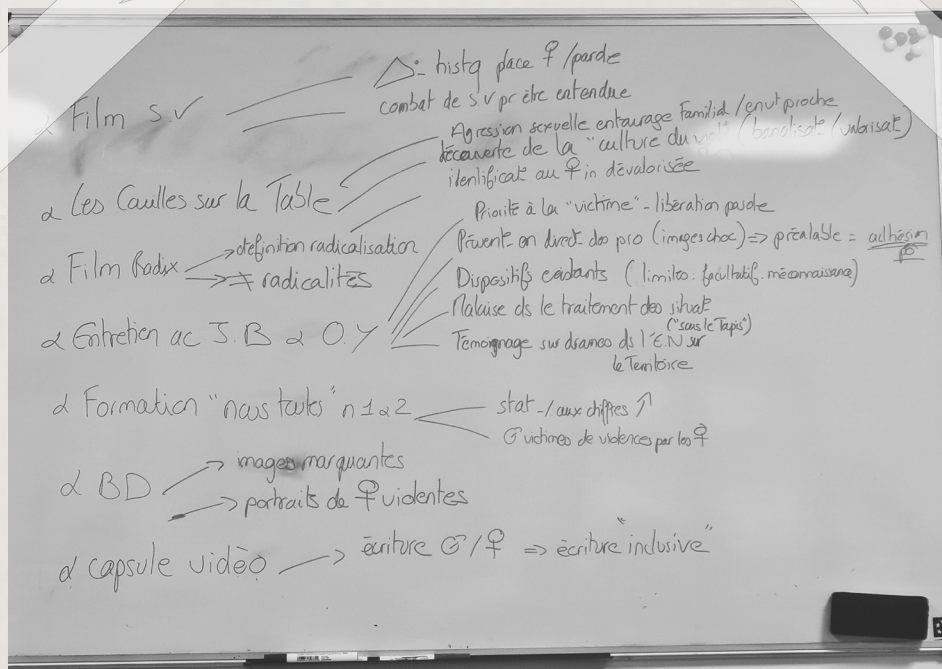 α Film S.V
histq place ♀ /parole
combat de S.V pr être entendue
α Les Cailles sur la Table
Agression sexuelle entourage Familial / envt proche
découverte de la "culture du viol" (banalisat°/valorisat°)
identificat° au ♀ in dévalorisée
α Film Radix
→ définition radicalisation
→ ≠ radicalités
α Entretien ac J.B α O.Y
Priorité à la "victime" - libération parole
Prévent° en direct des pro (images choc) => préalable = adhésion
Dispositifs existants (limites: facultatif - méconnaissance)
Malaise ds le traitement des situat°
("sous le Tapis")
Témoignage sur drames ds l'E.N sur
le Territoire
α Formation "nous toutes" n 1 α 2
stat - / aux chiffres ↑
♂ victimes de violences par les ♀
α BD
→ images marquantes
→ portraits de ♀ violentes
α capsule vidéo → écriture ♂/♀ => écriture "inclusive"